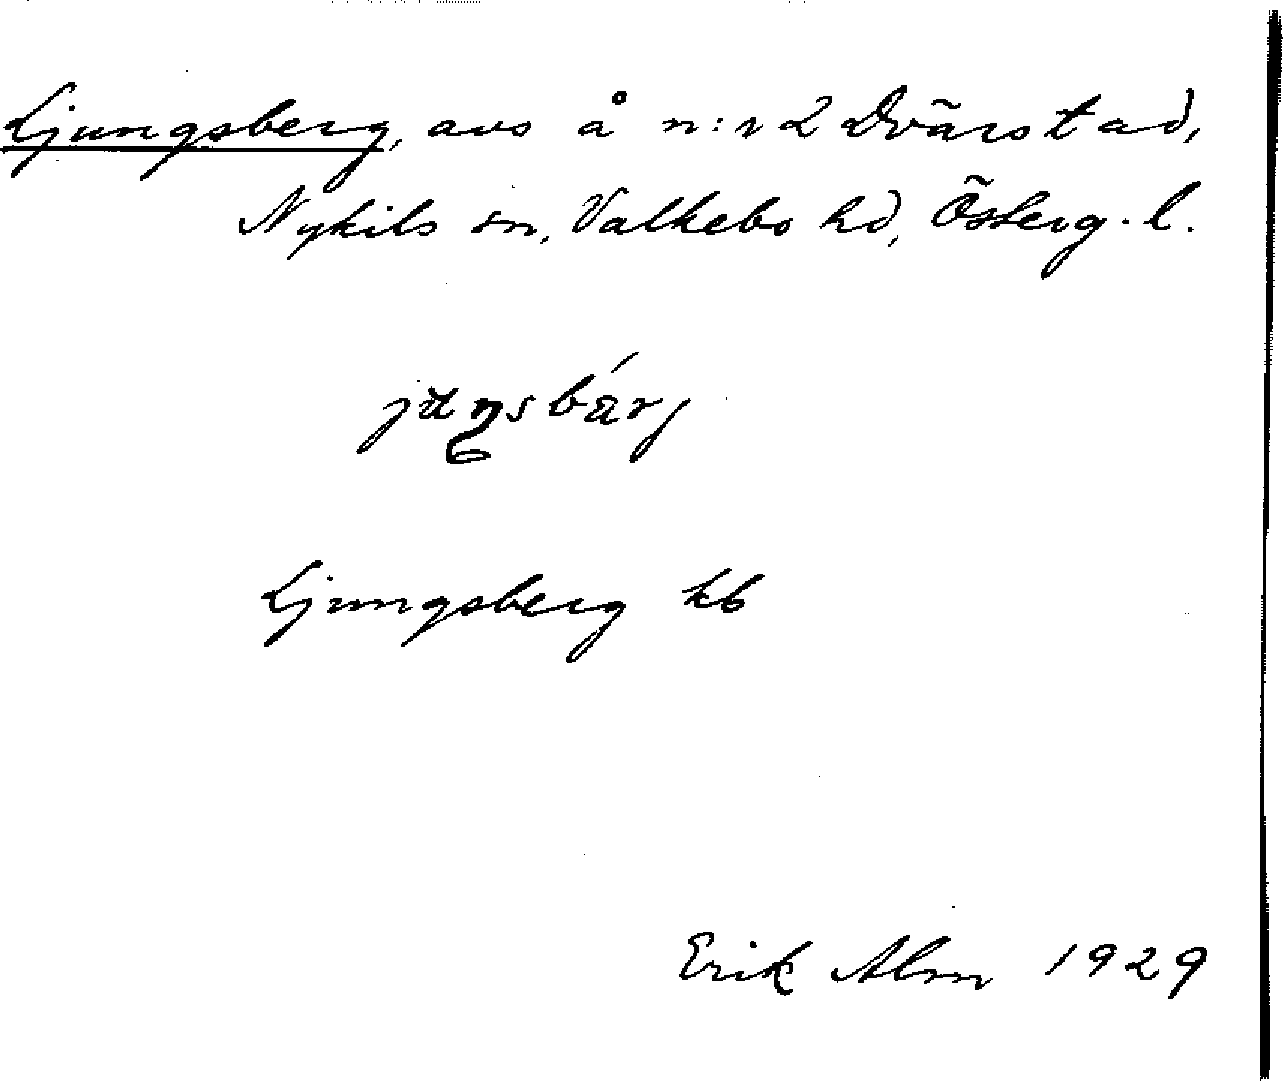 Ljungsberg, avs å n:r 2 Dvärstad,
Nykils sn, Valkebo hd, Österg. l.
Ljungsberg kb
Erik Alm 1929